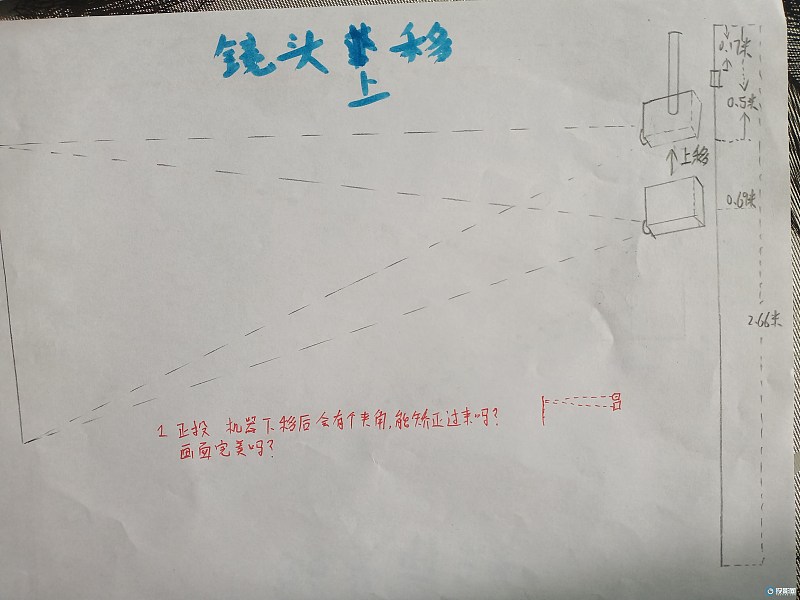 镜头移
上
0.5米
上移
0.69米
2.66米
1. 正投 机器下移后会有个夹角,能矫正过来吗?
画面完美吗?